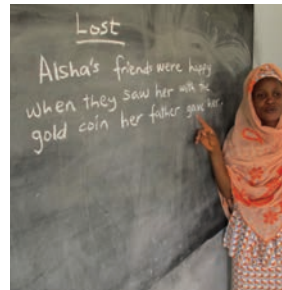 Lost
Aisha's friends were happy
when they saw her with the
gold coin her father gave her.